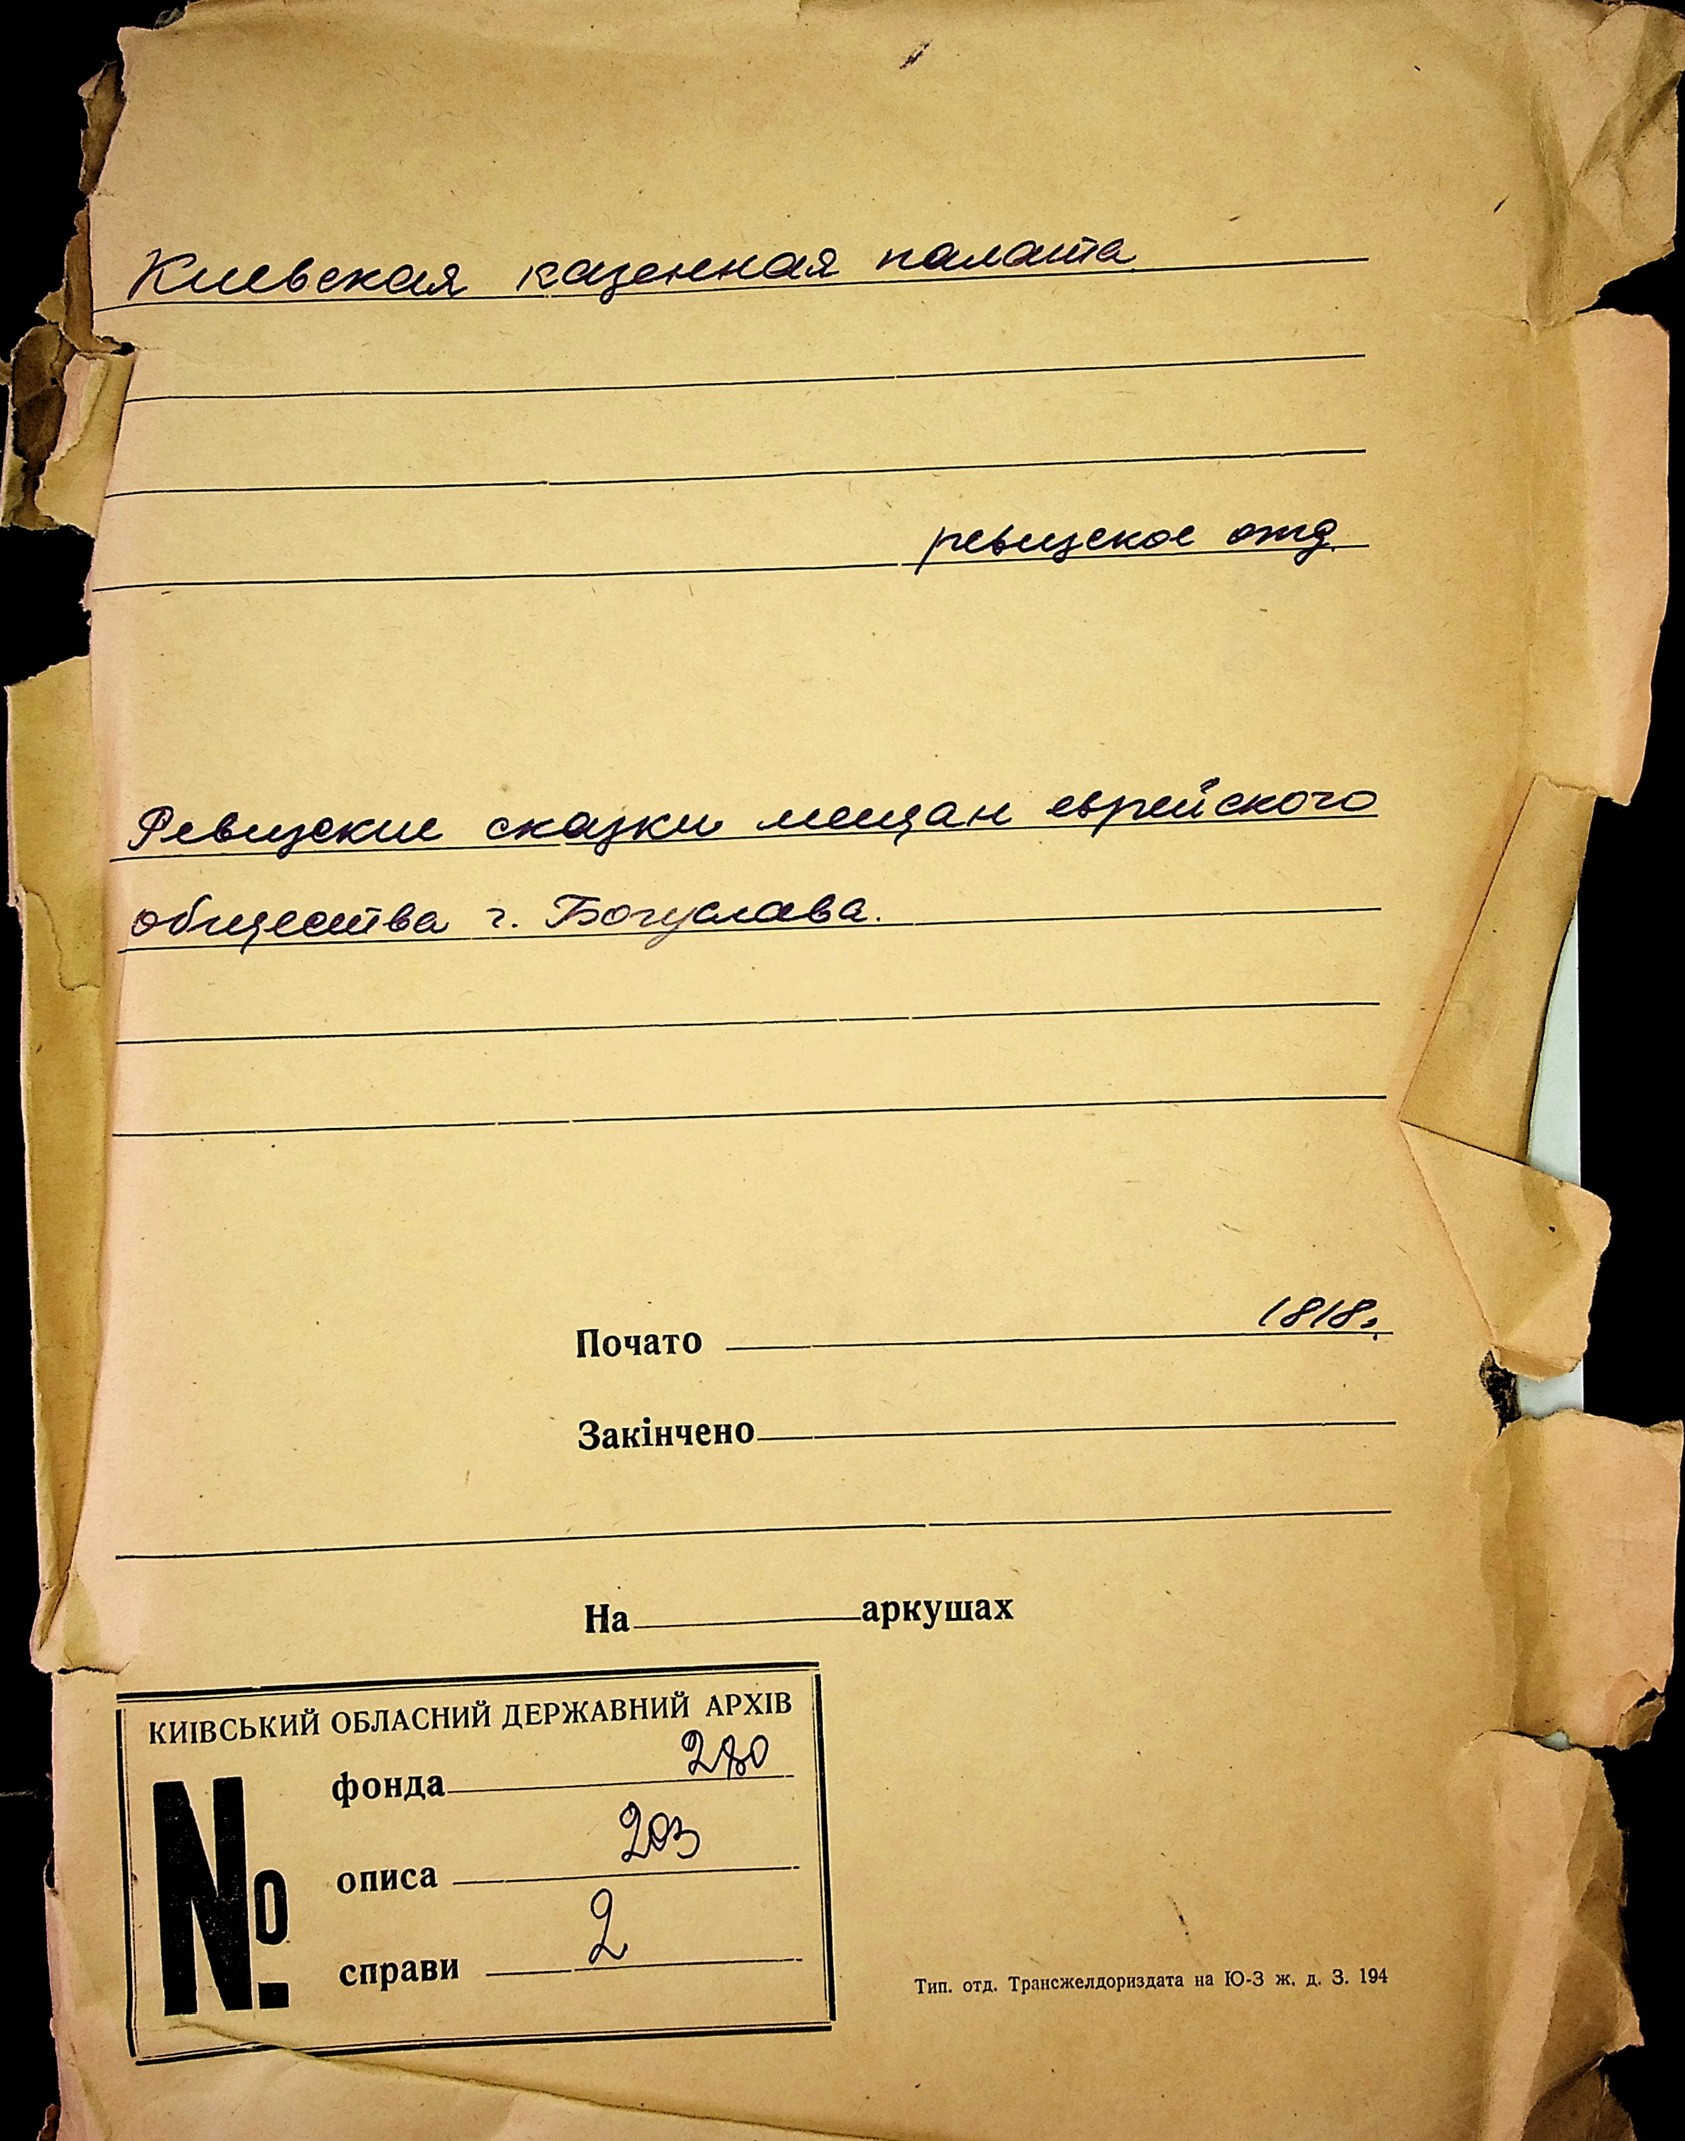 Киевская казенная палата
ревизское отд.
Ревизские сказки мещан еврейского
общества г. Богуслава.
Почато 1818.
Закінчено
На аркушах
КИІВСЬКИЙ ОБЛАСНИЙ ДЕРЖАВНИЙ АРХІВ
№
фонда 280
описа 203
справи 2
Тип. отд. Трансжелдориздата на Ю-З ж. д. З. 194